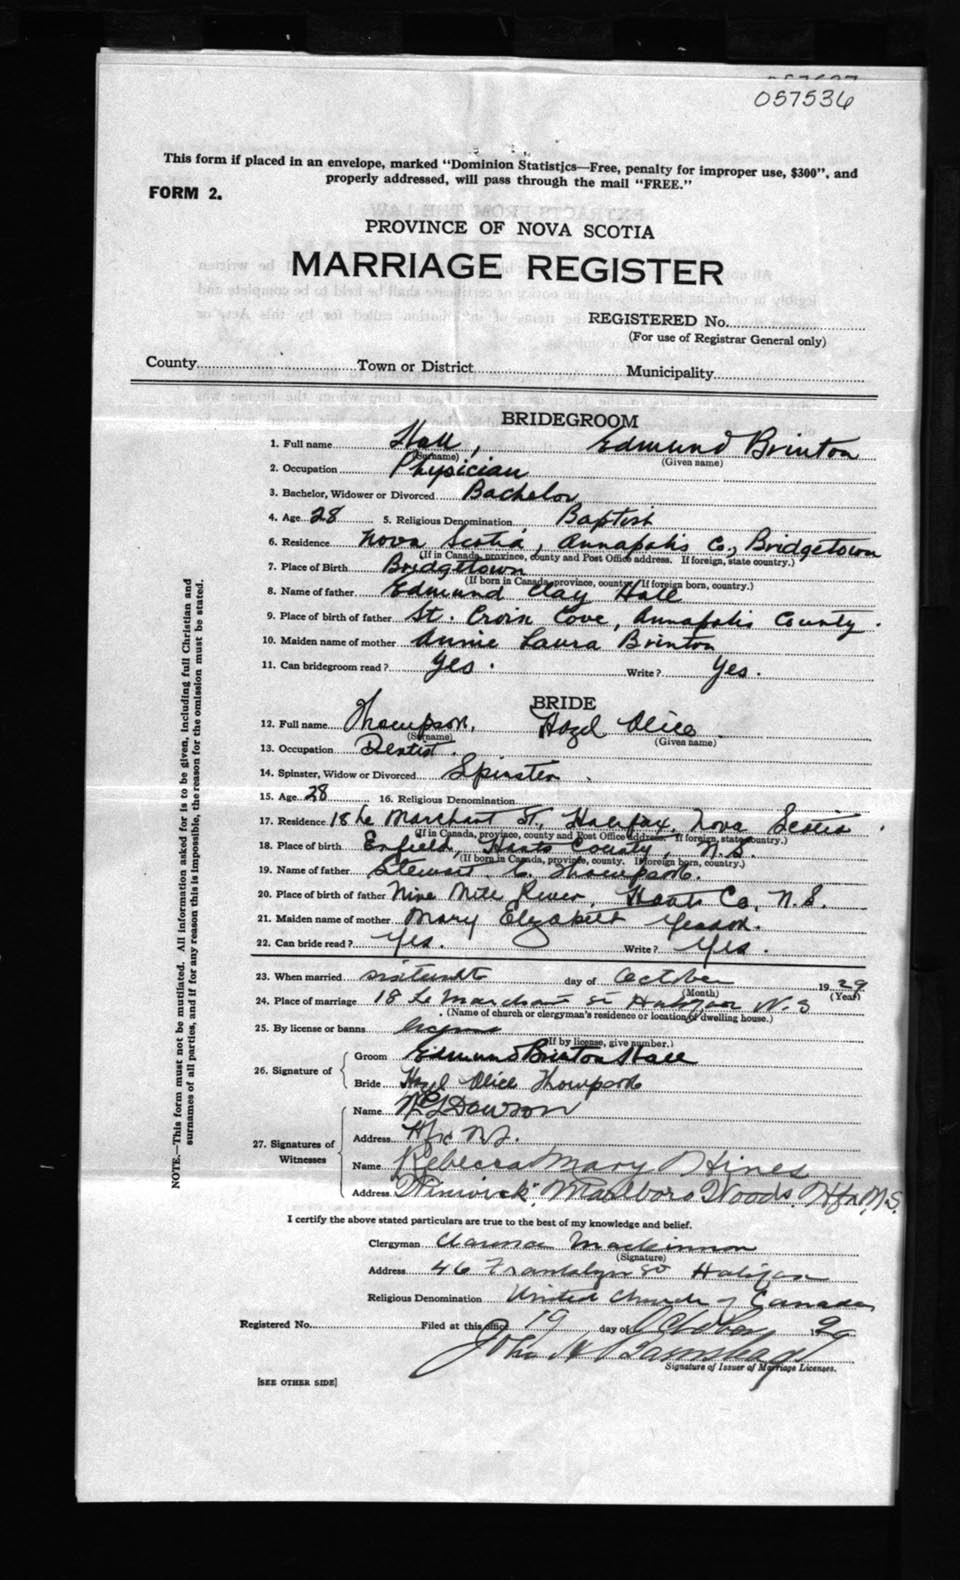 057536
This form if placed in an envelope, marked "Dominion Statistics—Free, penalty for improper use, $300", and
properly addressed, will pass through the mail "FREE."
FORM 2.
PROVINCE OF NOVA SCOTIA
MARRIAGE REGISTER
REGISTERED No.
(For use of Registrar General only)
County Town or District Municipality
BRIDEGROOM
1. Full name Hall, Edmund Brinton
(Surname) (Given name)
2. Occupation Physician
3. Bachelor, Widower or Divorced Bachelor
4. Age 28 5. Religious Denomination Baptist
6. Residence Nova Scotia, Annapolis Co, Bridgetown
(If in Canada, province, county and Post Office address. If foreign, state country.)
7. Place of Birth Bridgetown
(If born in Canada, province, county. If foreign born, country.)
8. Name of father Edmund Clay Hall
9. Place of birth of father St. Croix Cove, Annapolis County.
10. Maiden name of mother Annie Laura Brinton
11. Can bridegroom read? Yes. Write? Yes.
BRIDE
12. Full name Thompson, Hazel Alice
(Surname) (Given name)
13. Occupation Dentist.
14. Spinster, Widow or Divorced Spinster
15. Age 28 16. Religious Denomination
17. Residence 18 Le Marchant St., Halifax, Nova Scotia
(If in Canada, province, county and Post Office address. If foreign, state country.)
18. Place of birth Enfield, Hants County, N.S.
(If born in Canada, province, county. If foreign born, country.)
19. Name of father Stewart C. Thompson.
20. Place of birth of father Nine Mile River, Hants Co, N.S.
21. Maiden name of mother Mary Elizabeth
22. Can bride read? Yes. Write? Yes.
23. When married sixteenth day of October 1929
(Month) (Year)
24. Place of marriage 18 Le Marchant St Halifax N.S
(Name of church or clergyman's residence or location of dwelling house.)
25. By license or banns license
(If by license, give number.)
26. Signature of
Groom Edmund Brinton Hall
Bride Hazel Alice Thompson
27. Signatures of Witnesses
Name Dawson
Address Hfx N.S.
Name Rebecca Mary Hines
Address "Winwick" Marlboro Woods. Hfx N.S.
I certify the above stated particulars are true to the best of my knowledge and belief.
Clergyman Clarence Mackinnon
(Signature)
Address 46 Franklyn St Halifax
Religious Denomination United Church of Canada
Registered No. Filed at this office 19 day of October 1929
John
Signature of Issuer of Marriage Licenses.
[SEE OTHER SIDE]
NOTE.—This form must not be mutilated. All information asked for is to be given, including full Christian and
surnames of all parties, and if for any reason this is impossible, the reason for the omission must be stated.